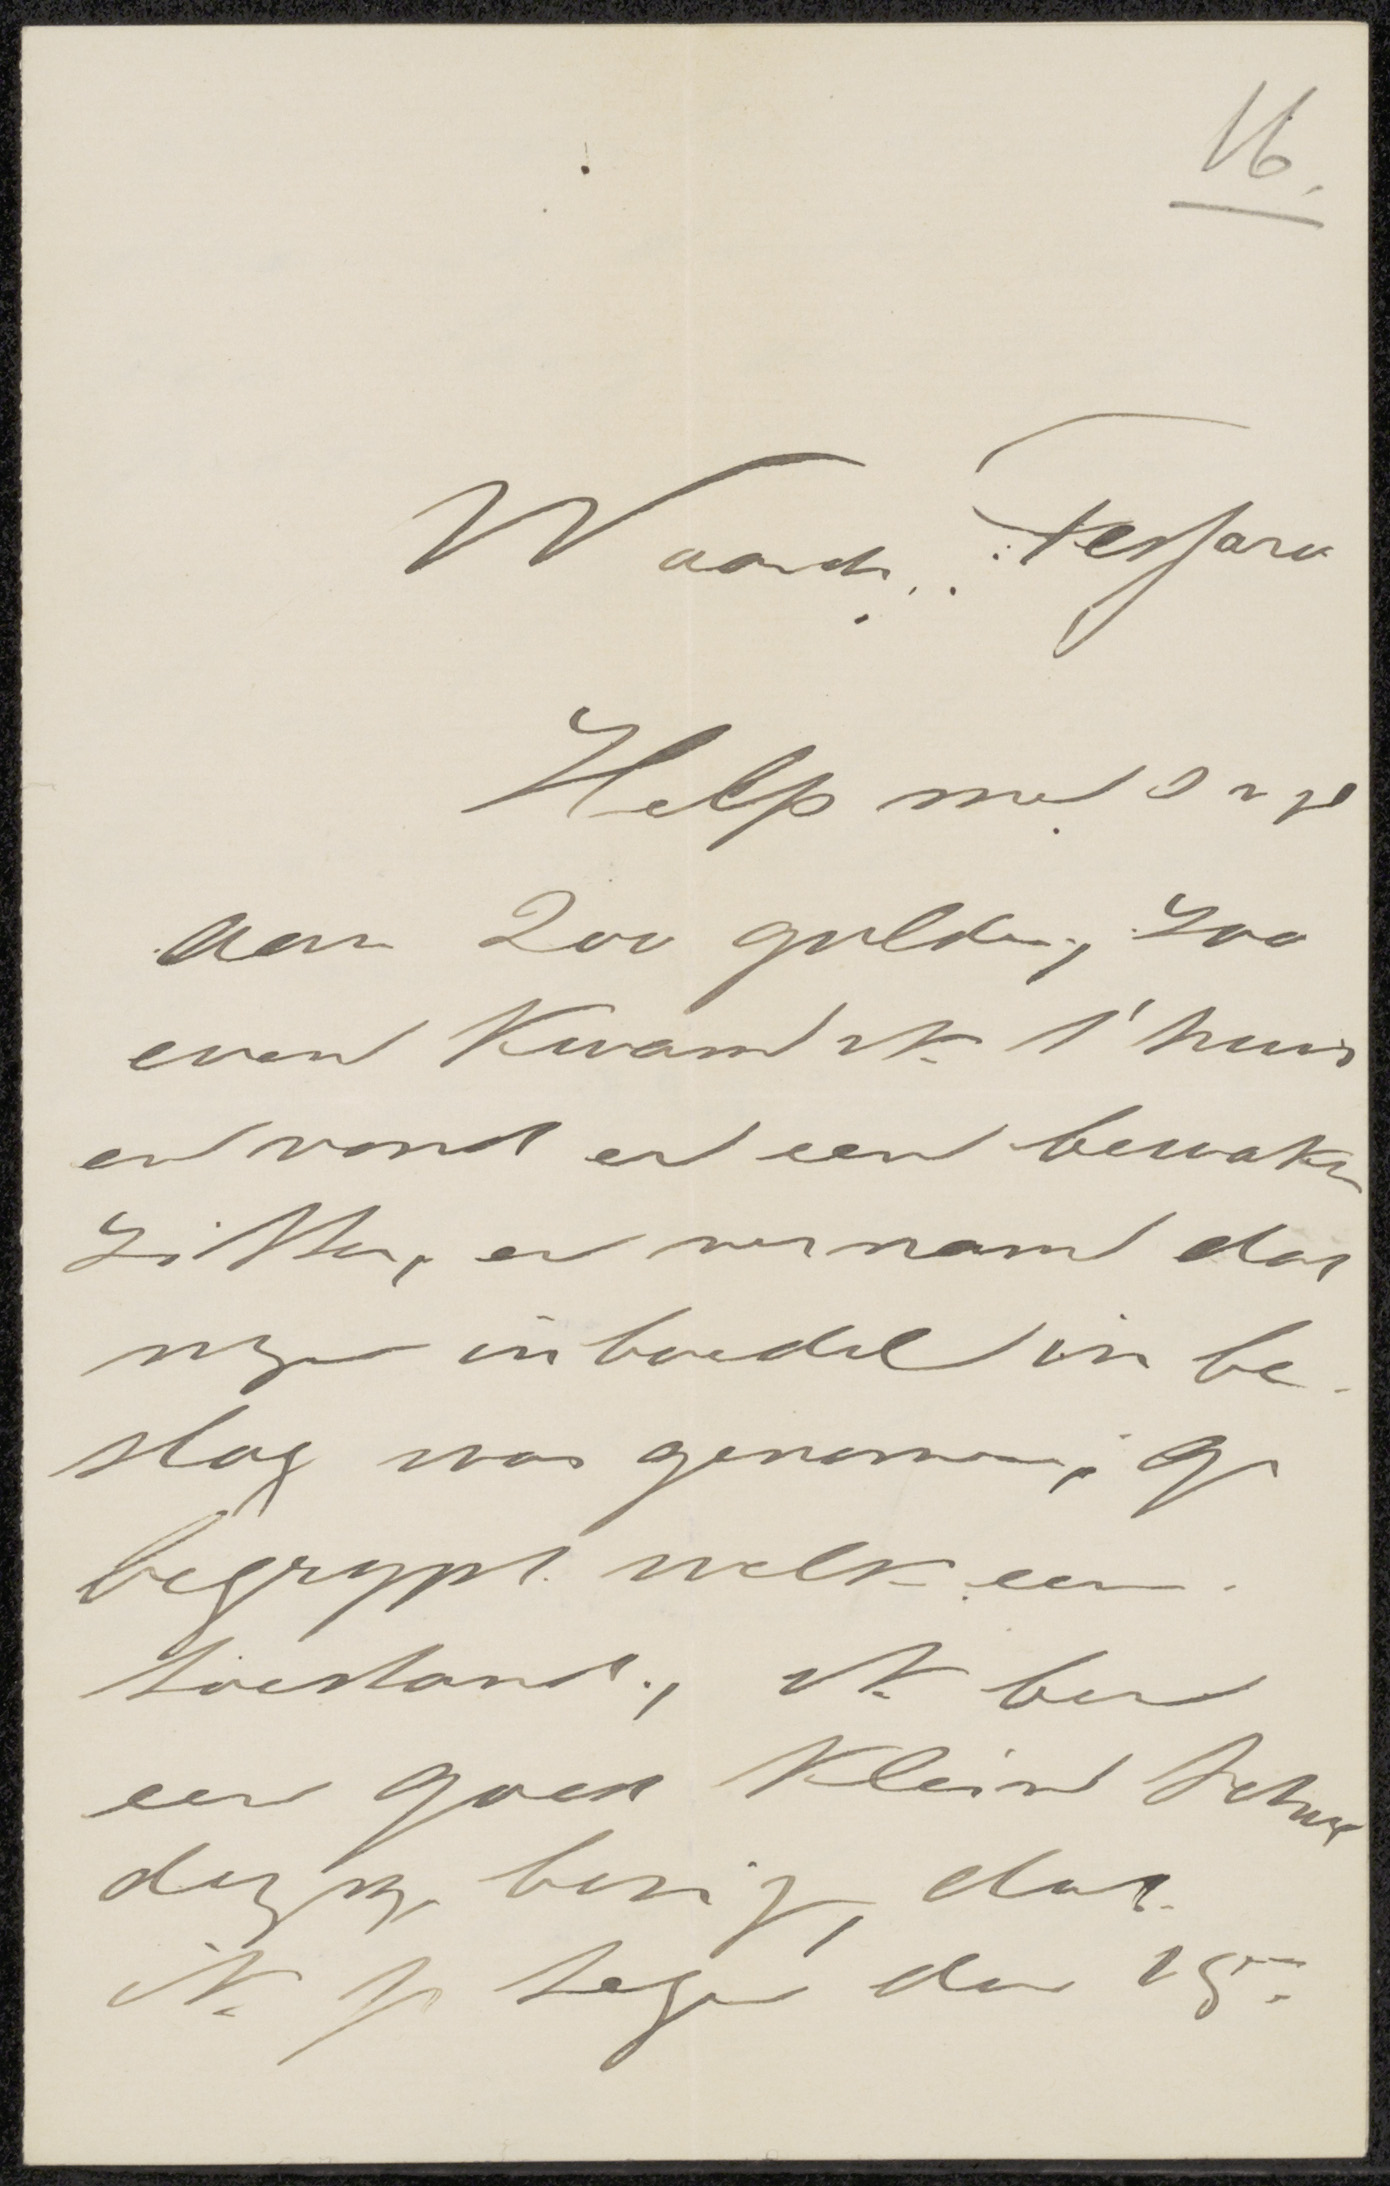 16.
Waarde Tessaro
Help me
aan 200 gulden, zoo
even kwam ik t'huis
en vond er een bewaker
zitten, en vernam dat
mijn inboedel in be-
slag was genomen; gij
begrypt welk een
toestand, ik ben
een goed klein schil
derytje bezig, dat
ik je tegen den 25